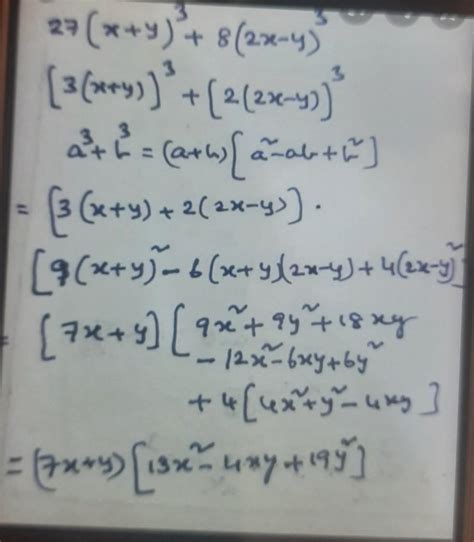 27(x+y)³ + 8(2x-y)³
[3(x+y)]³ + [2(2x-y)]³
a³+b³ = (a+b)[a²-ab+b²]
= [3(x+y)+2(2x-y)].
[9(x+y)²-6(x+y)(2x-y)+4(2x-y)²]
= [7x+y][9x²+9y²+18xy
-12x²-6xy+6y²
+4[4x²+y²-4xy]
= (7x+y)[13x²-4xy+19y²]